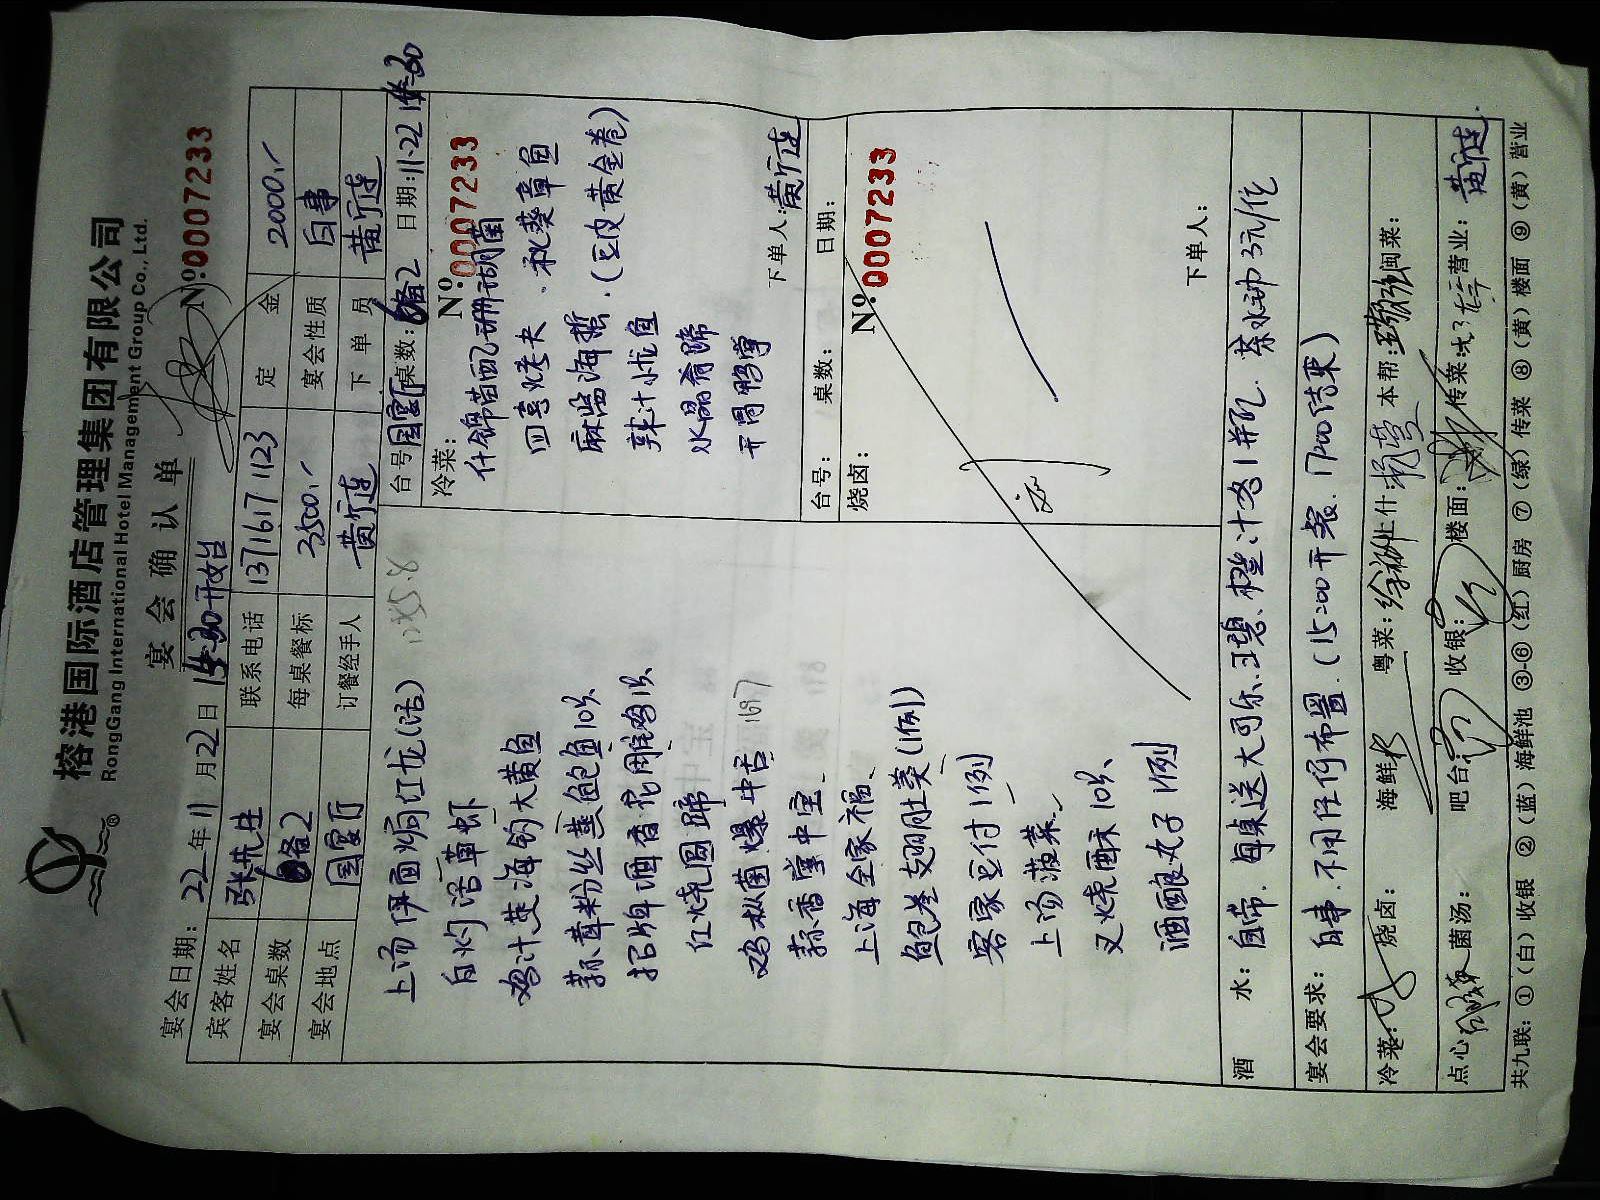 榕港国际酒店管理集团有限公司
RongGang International Hotel Management Group Co., Ltd.
宴会确认单
№:0007233
宴会日期: 22年11月22日 14:30开始
宾客姓名 张先生 联系电话 13716171123 定金 2000.-
宴会桌数 6备2 每桌餐标 3500.- 宴会性质 白事
宴会地点 国宴厅 订餐经手人 黄宁连 下单员 黄宁连
上汤伊面焗红龙(活)
白灼活草虾
鸡汁芡海钓大黄鱼
蒜茸粉丝蒸鲍鱼10只
招牌酒香花雕鸡1只
红烧圆蹄
鸡枞菌爆牛舌
蒜香掌中宝
上海全家福
鱼包参翅肚羹(1例)
客家豆付1例
上汤菠菜
叉烧酥10只
酒酿丸子1例
台号:国宴厅 桌数:6备2 日期:11.22 14:30
冷菜:
№:0007233
什锦苗配珊瑚菌
四喜烤夫
秋葵章鱼
麻酱海蜇
(豆皮黄金卷)
辣汁小忧鱼
水晶肴蹄
开胃鸭掌
下单人:黄宁连
台号: 桌数: 日期:
烧卤:
№:0007233
下单人:
酒水: 自带.每桌送大可乐.王碧.橙汁各1并瓦.茶水神3元/位
宴会要求: 白事.不用任何布置.(15:00开餐.17:00结束)
冷菜: 烧卤: 海鲜 粤菜: 上什: 本帮: 闽菜:
点心 菌汤: 吧台: 收银: 楼面: 传菜: 营业: 黄宁连
共九联: ①(白)收银 ②(蓝)海鲜池 ③-⑥(红)厨房 ⑦(绿)传菜 ⑧(黄)楼面 ⑨(黄)营业